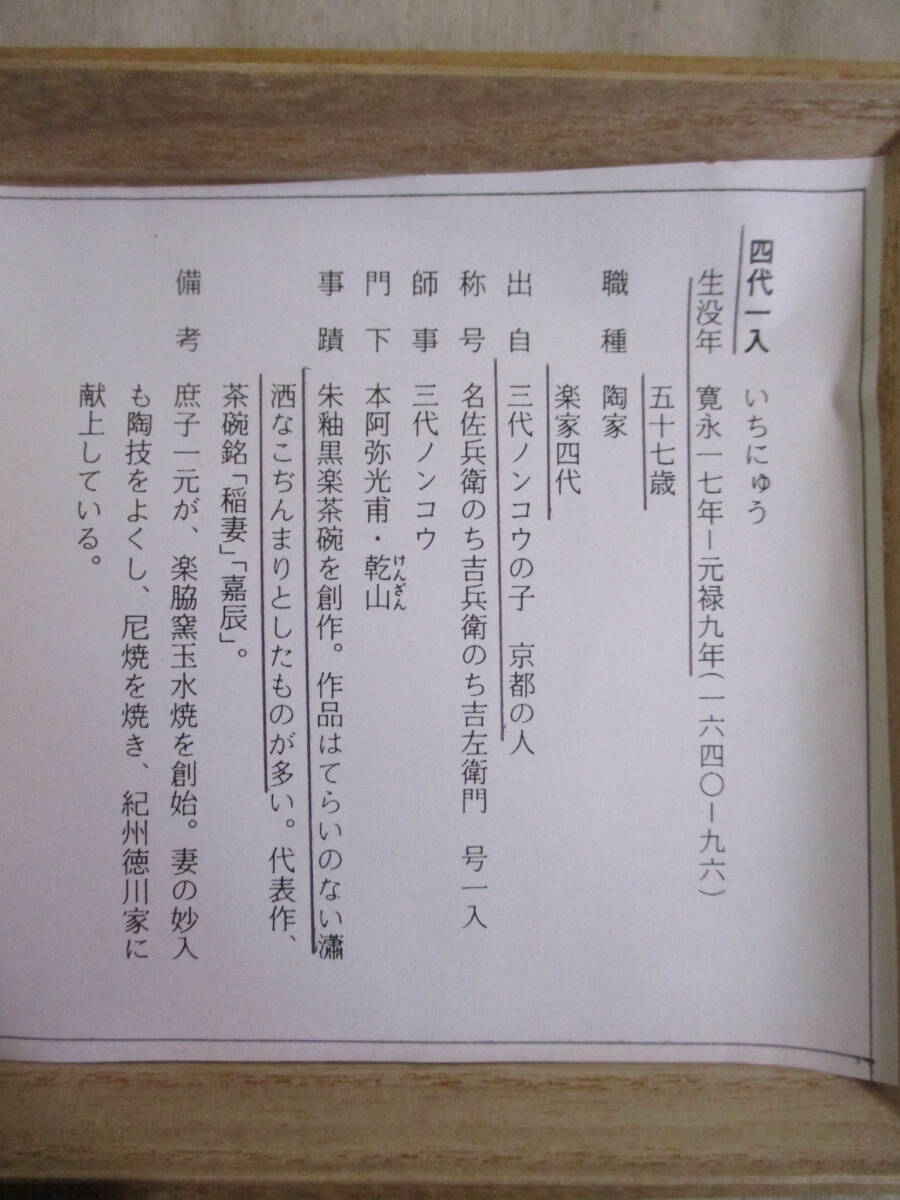 四代一入 いちにゅう
生没年 寛永一七年―元禄九年(一六四〇―九六)
五十七歳
職種 陶家
楽家四代
出自 三代ノンコウの子 京都の人
称号 名佐兵衛のち吉兵衛のち吉左衛門 号一入
師事 三代ノンコウ
門下 本阿弥光甫・乾山 けんざん
事蹟 朱釉黒楽茶碗を創作。作品はてらいのない瀟
洒なこぢんまりとしたものが多い。代表作、
茶碗銘「稲妻」「嘉辰」。
備考 庶子一元が、楽脇窯玉水焼を創始。妻の妙入
も陶技をよくし、尼焼を焼き、紀州徳川家に
献上している。